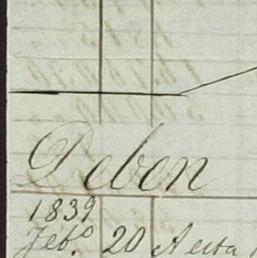 Debon
1839
Feb.º 20 A esta